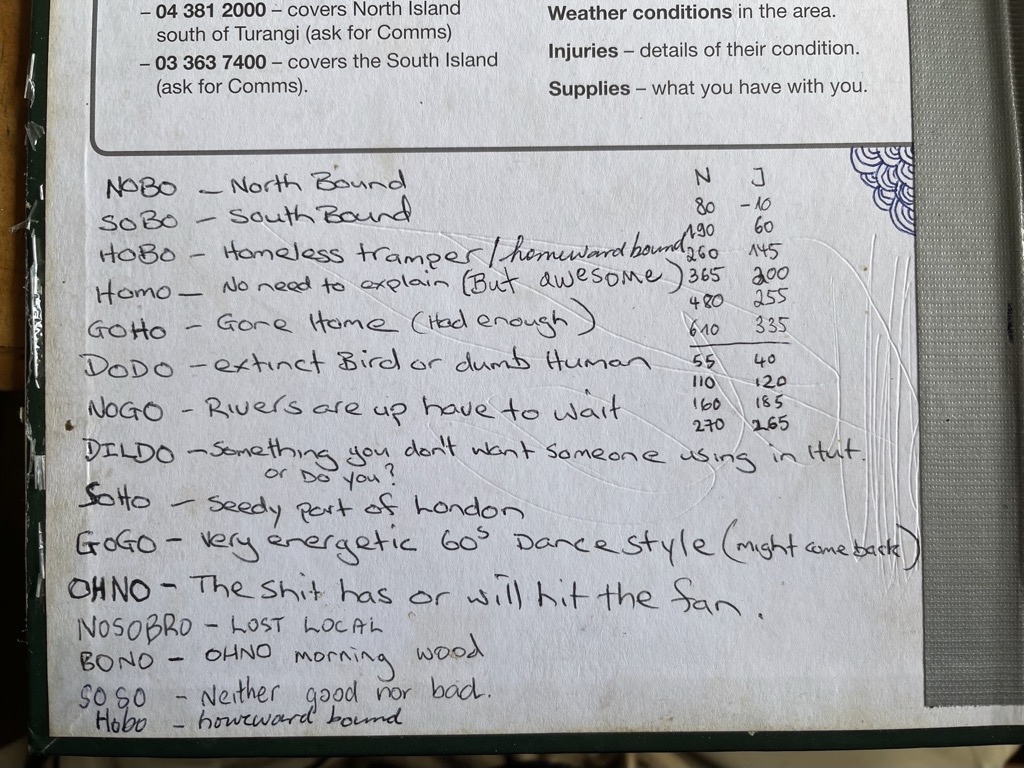 – 04 381 2000 – covers North Island
south of Turangi (ask for Comms)
– 03 363 7400 – covers the South Island
(ask for Comms).
Weather conditions in the area.
Injuries – details of their condition.
Supplies – what you have with you.
NOBO – North Bound
SOBO – South Bound
HOBO – Homeless tramper / homeward bound
Homo – No need to explain (But awesome)
GOHO – Gone Home (Had enough)
DODO – extinct Bird or dumb Human
NOGO – Rivers are up have to wait
DILDO – Something you don't want someone using in Hut.
or Do you?
SOHO – Seedy part of London
GOGO – very energetic 60s Dance style (might come back)
OHNO – The shit has or will hit the fan.
NOSOBRO – LOST LOCAL
BONO – OHNO morning wood
SOSO – Neither good nor bad.
Hobo – homeward bound
N J
80 -10
190 60
260 145
365 200
480 255
610 335
55 40
110 120
160 185
270 265